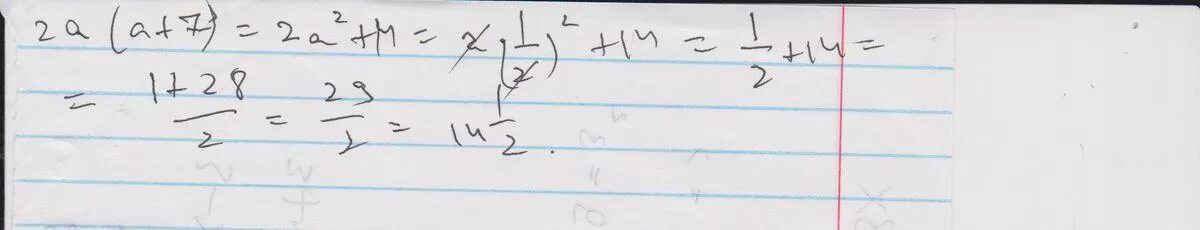 2a (a+7) = 2a² + 14 = 2 · (1/2)² + 14 = 1/2 + 14 =
= (1+28)/2 = 29/2 = 14 1/2.